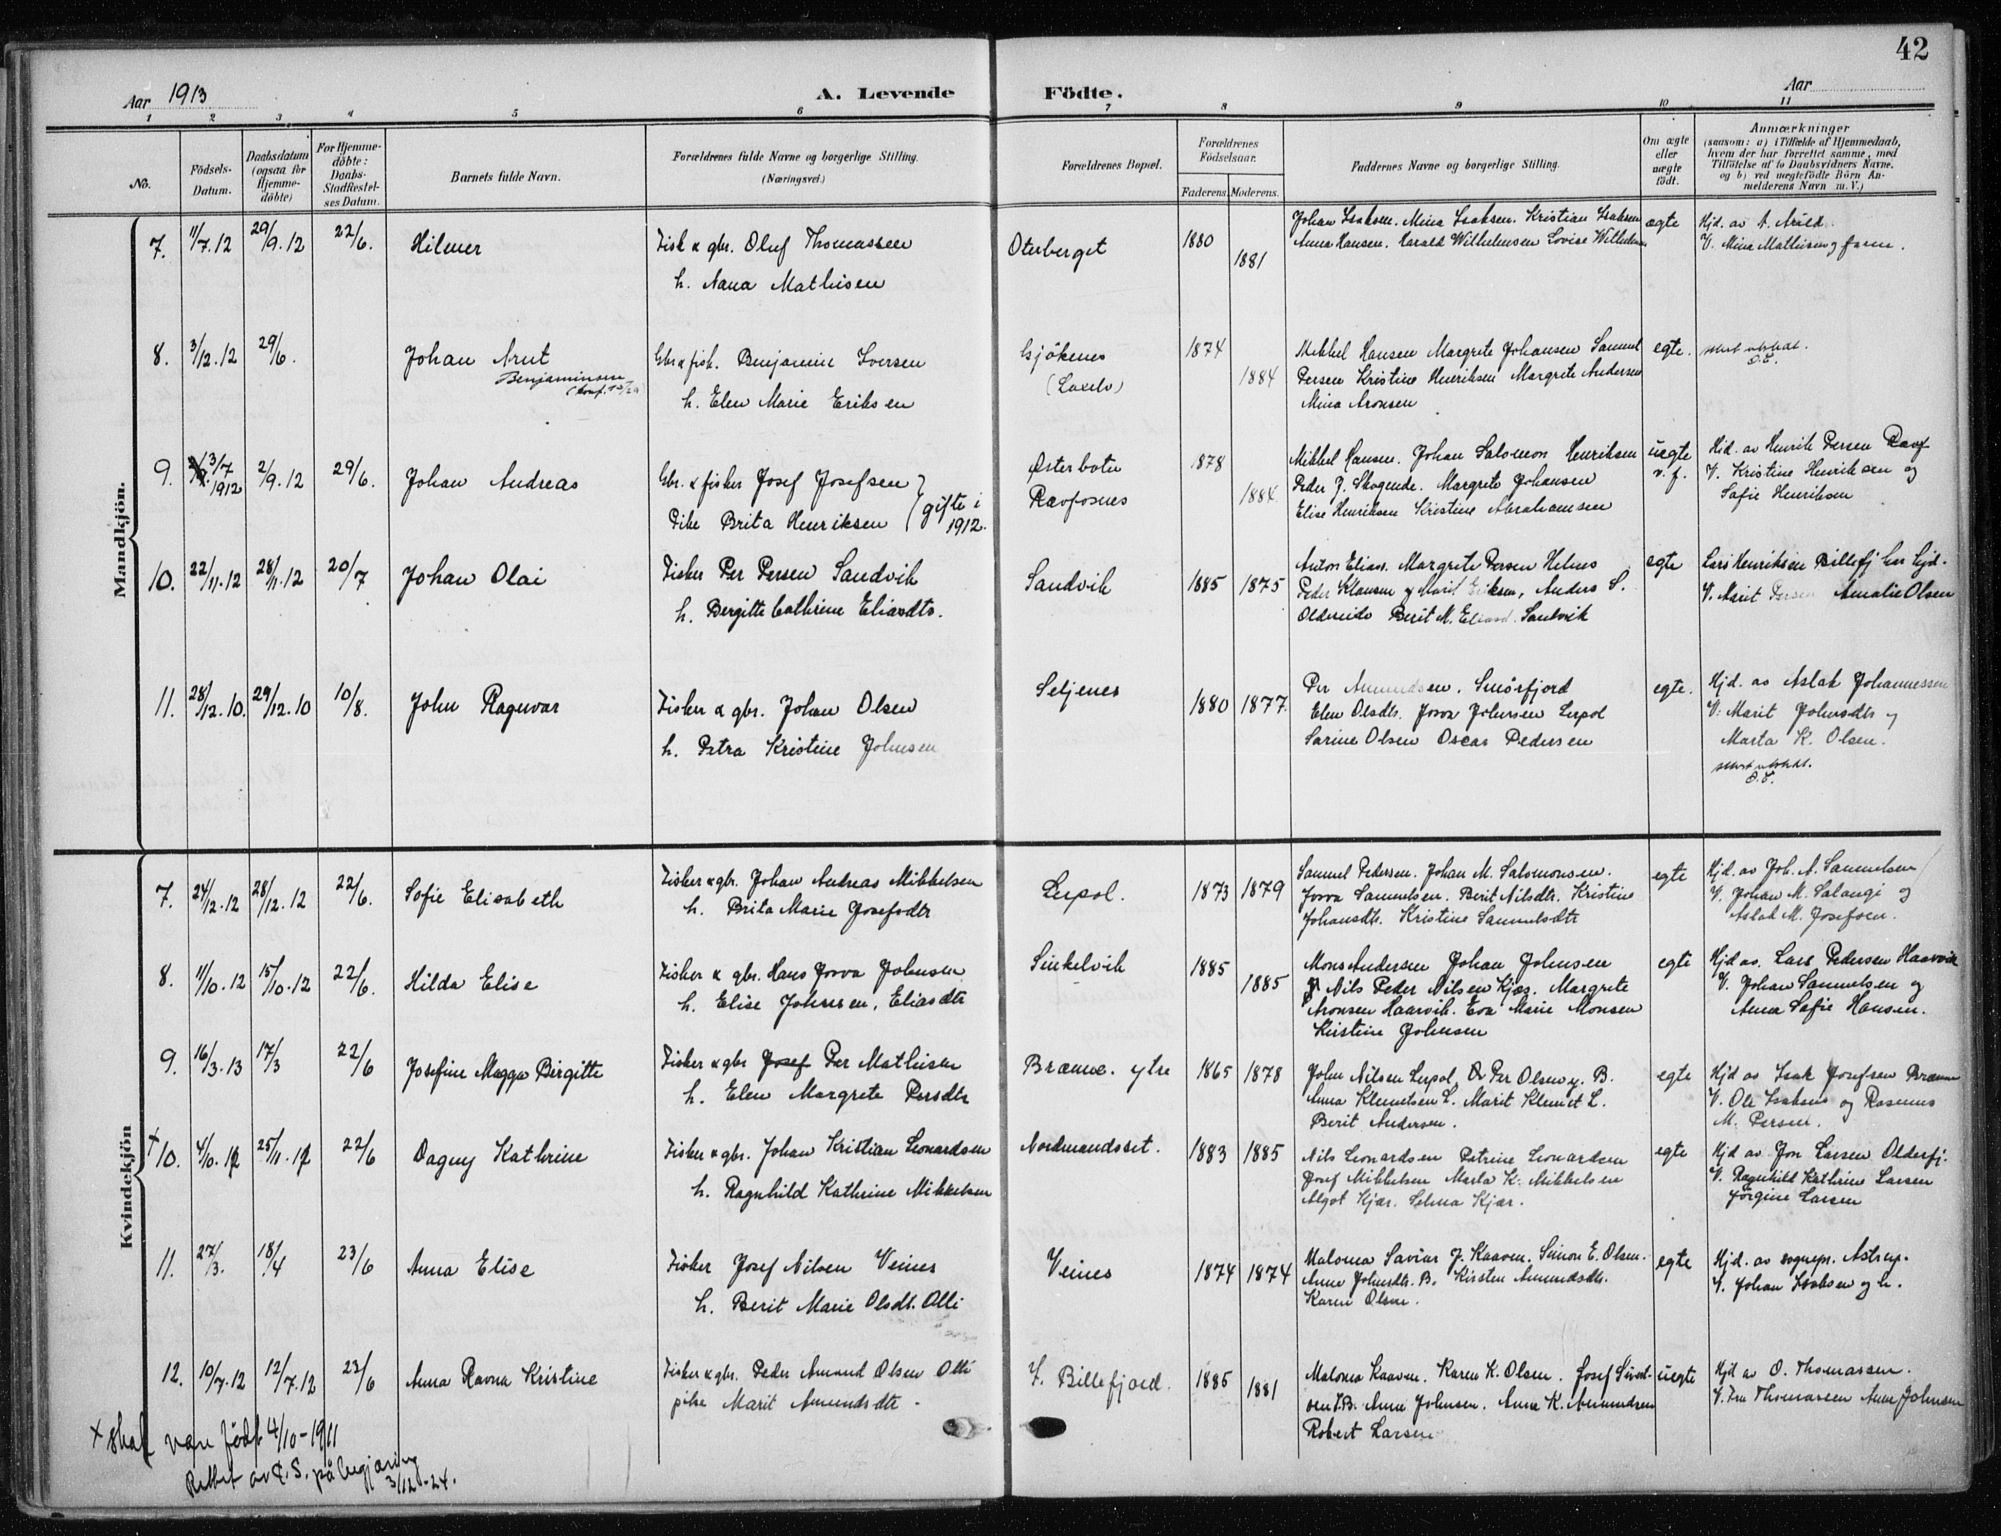 42
Aar 1913
A. Levende Födte.
Aar
1 2 3 4 5 6 7 8 9 10 11
No.
Födsels-
Datum.
Daabsdatum
(ogsaa for
Hjemme-
döbte)
For Hjemme-
döbte:
Daabs-
Stadfæstel-
ses Datum.
Barnets fulde Navn.
Forældrenes fulde Navne og borgerlige Stilling.
(Næringsvei.)
Forældrenes Bopæl.
Forældrenes
Födselsaar.
Faderens. Moderens.
Faddernes Navne og borgerlige Stilling.
Om ægte
eller
uægte
födt.
Anmærkninger
(saasom: a) i Tilfælde af Hjemmedaab,
hvem der har forrettet samme, med
Tilföielse af to Daabsvidners Navne.
og b) ved uægtefödte Börn An-
melderens Navn m. V.)
Mandkjön.
7. 11/7.12 29/9.12 22/6. Hilmer
Fisk & gbr. Oluf Thomassen
h. Nana Mathisen
Oterberget
1880 1881
Johan Isaksen. Mina Isaksen. Kristian Isaksen
Anna Hansen. Harald Wilhelmsen Lovise Wilhelmsen
ægte
Hjd. av A. Arild.
V. Mina Mathisen og farm.
8. 3/12.12 29/6. Johan Arnt
Benjaminsen
Gbr & fisk. Benjamin Iversen
h. Elen Marie Eriksen
Gjökenes
(Laxelv)
1874 1884
Mikkel Hansen Margrete Johansen Samuel
Persen Kristine Henriksen Margrete Andersen
Mina Aronsen
egte.
9. 3/7 1912 2/9.12 29/6. Johan Andreas
Gbr. & fisker Josef Josefsen
Pike Brita Henriksen
gifte i
1912.
Østerbotn
Ravfosnes
1878 1884
Mikkel Hansen. Johan Salomon Henriksen
Peder J. Skogende. Margrete Johansen
Elise Henriksen Kristine Abrahamsen
uegte
v. f.
Hjd. av Henrik Persen
V. Kristine Henriksen og
Safie Henriksen
10. 22/11.12 28/11.12 20/7 Johan Olai
Fisker Per Persen Sandvik
h. Bergitte Cathrine Eliasdtr.
Sandvik
1885 1875
Anton Elias. Margrete Persen Helnes
Peder Klausen og Marit Eriksen, Anders S.
Oldereide Berit M. Eliasd. Sandvik
egte
Lars Henriksen Billefj har hjd.
V. Marit Persen Amalie Olsen
11. 28/12.10. 29/12.10 10/8. John Ragnvar
Fisker & gbr. Johan Olsen
h. Petra Kristine Johnsen
Seljenes
1880 1877.
Per Amundsen. Smörfjord
Elen Olsdtr. Jovva Johnsen Leipol
Sarine Olsen Oscar Pedersen
egte.
Hjd. av Aslak Johannessen
V: Marit Johnsdtr og
Marta K. Olsen.
Kvindekjön
7. 24/12.12 28/12.12 22/6. Sofie Elisabeth
Fisker & gbr. Johan Andreas Mikkelsen
h. Brita Marie Josefsdtr
Leipol.
1873 1879
Samuel Pedersen. Johan M. Salomonsen.
Jovva Samuelsen. Berit Nilsdtr. Kristine
Johansdtr. Kristine Samuelsdtr
egte
Hjd. av Joh. A. Samuelsen
V. Johan M. Salangi og
Aslak M. Josefsen.
8. 11/10.12 15/10.12 22/6. Hilda Elise
Fisker & gbr. Hans Jovva Johnsen
h. Elise Johnsen, Eliasdtr
Sinkelvik
1885 1885
Mons Andersen Johan Johnsen
Nils Peder Nilsen Kjæs. Margrete
Aronsen Haarvik. Eva Marie Monsen
Kristine Johnsen
egte
Hjd av. Lars Pedersen Haarvik
V. Johan Samuelsen og
Anna Sofie Hansen.
9. 16/3.13 17/3 22/6 Josefine Magga Birgitte
Fisker & gbr Josef Per Mathisen
h. Elen Margrete Persdtr
Brænne. ytre
1865 1878
John Nilsen Leipol, Per Olsen y. B.
Anna Klemetsen L. Marit Klemet L.
Berit Andersen.
egte
Hjd av Isak Josefsen Brænne
V. Ole Isaksen og Rasmus
M. Persen.
+10. 4/10.12 25/11.12 22/6 Dagny Kathrine
Fisker & gbr. Johan Kristian Leonardsen
h. Ragnhild Kathrine Mikkelsen
Nordmandsset.
1883 1885
Nils Leonardsen Petrine Leonardsen
Josef Mikkelsen Marta K. Mikkelsen
Algot Kjær. Selma Kjær.
egte
Hjd av Jon Larsen Olderfj.
V. Ragnhild Kathrine Larsen
Jörgine Larsen
11. 27/3. 18/4 23/6 Anna Elise
Fisker Josef Nilsen Veines
h. Berit Marie Olsdt. Olli
Veines
1874 1874
Malonea Saviar J. Kaaven. Simon E. Olsen.
Anne Johnsdtr. B. Kirsten Amundsdtr.
Karen Olsen.
egte
Hjd. av sognepr. Astrup.
V. Johan Isaksen og h.
12. 10/7.12 12/7.12 23/6 Anna Ravna Kristine
Fisker & gbr. Peder Amund Olsen Olli
pike Marit Amundsdtr.
I. Billefjord.
1885 1881
Malonea Kaaven. Karen K. Olsen. Josef Sivert-
sen I.B. Anne Johnsen. Anne K. Amundsen
Robert Larsen
uegte
Hjd av O. Thomassen.
V. Fru Thomassen Anne Johnsen
+ skal være født 4/10-1911
Rettet av E.S. på begjæring
3/12-24.